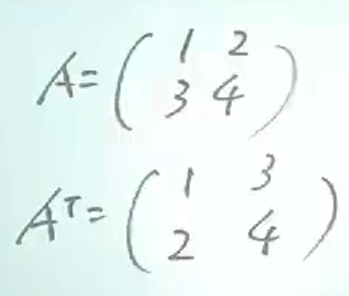 A = ( 1 2
3 4 )
Aᵀ = ( 1 3
2 4 )